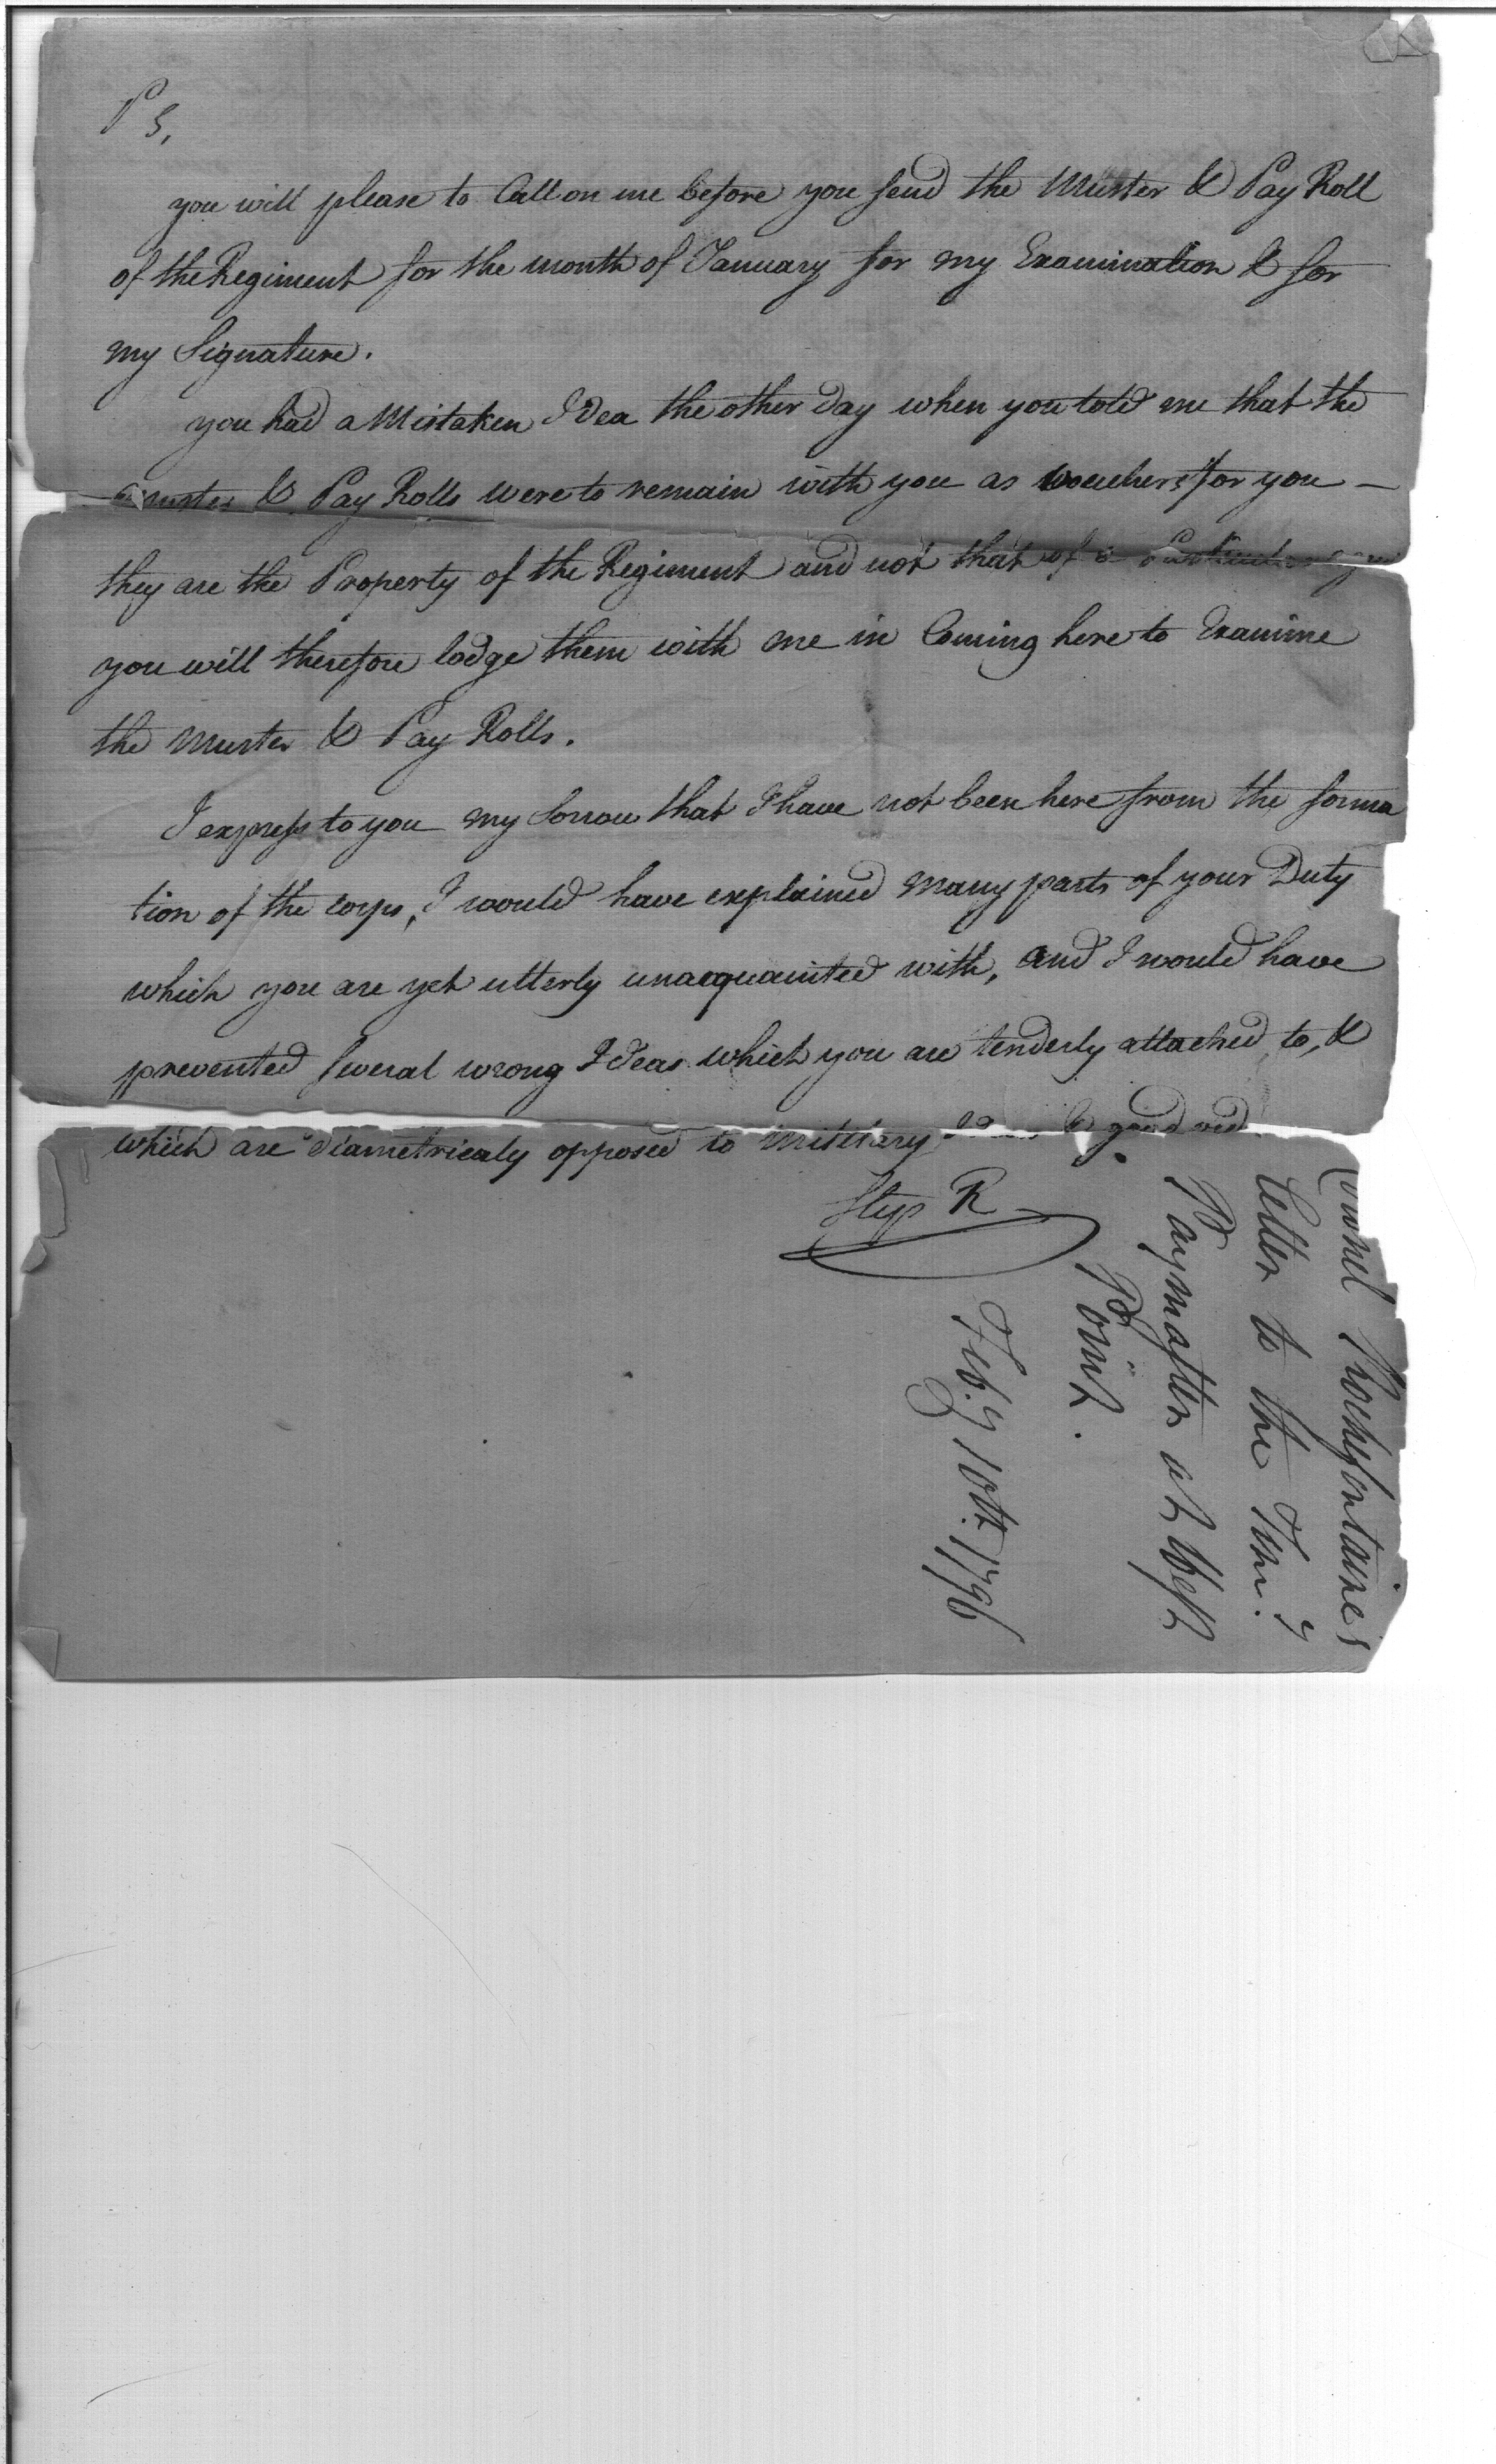 P S,
you will please to Call on me before you send the Muster & Pay Roll
of the Regiment for the month of January for my Examination & for
my Signature.
you had a Mistaken Idea the other day when you told me that the
muster & Pay Rolls were to remain with you as vouchers for you –
they are the Property of the Regiment and not that of a Particular
you will therefore lodge them with me in Coming here to Examine
the Muster & Pay Rolls.
I express to you my Sorrow that I have not been here from the forma
tion of the corps, I would have explained many parts of your Duty
which you are yet utterly unacquainted with, and I would have
prevented several wrong Ideas which you are tenderly attached to, &
which are diametricaly opposed to military & good
Step R
Colonel Rochefontaine's
Letter to the Tem.y
Paymaster at West
Point.
Feb.y 10th. 1796